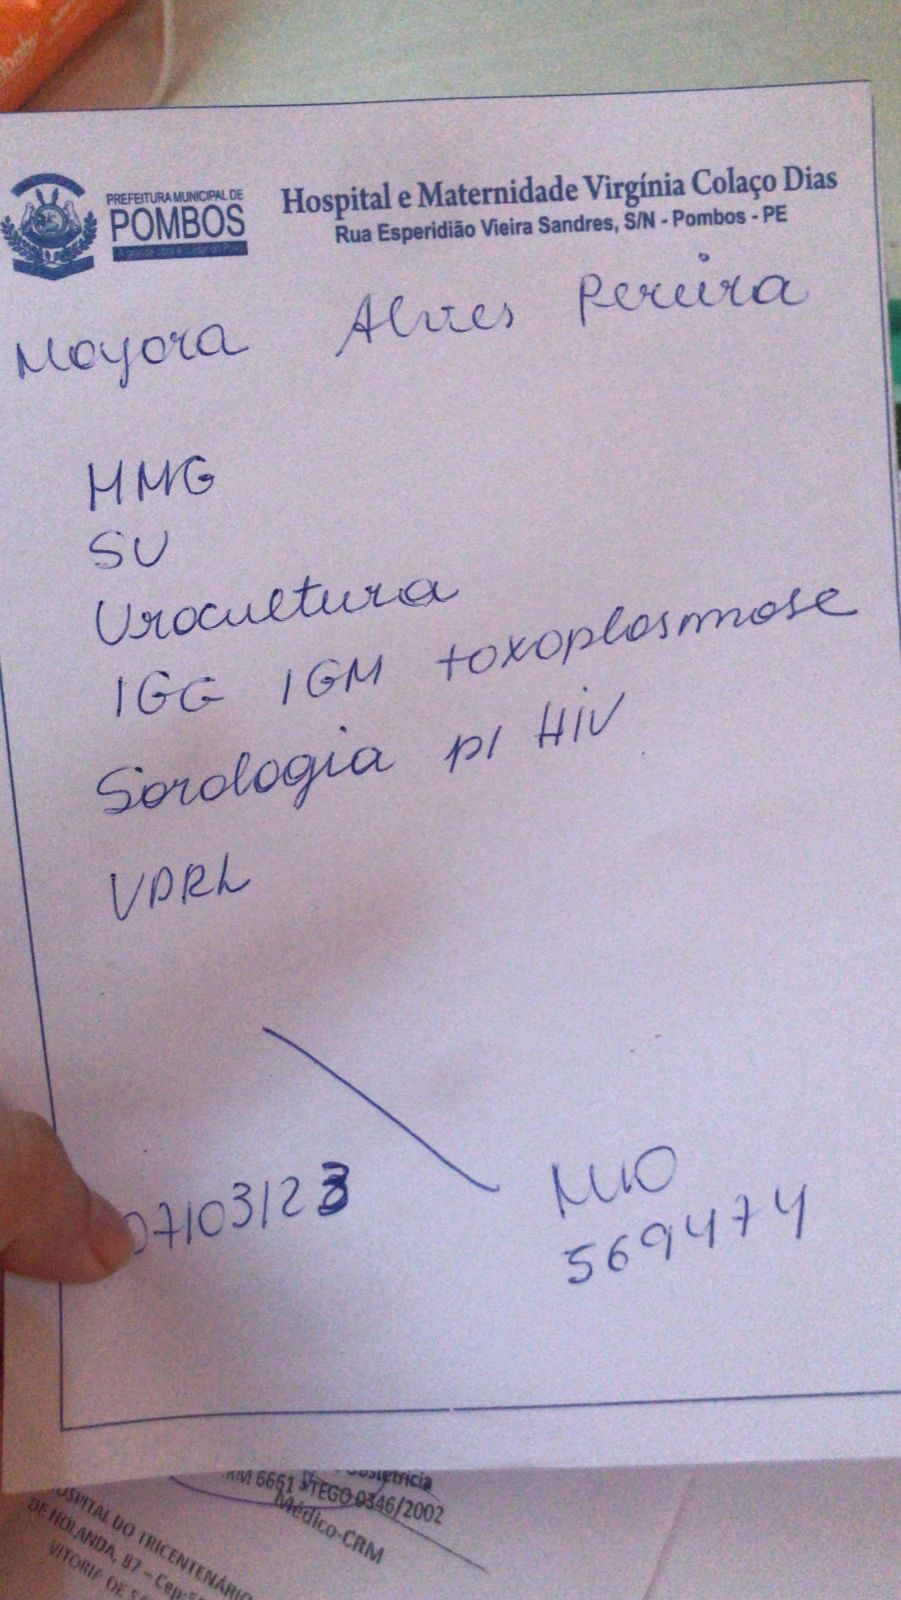 PREFEITURA MUNICIPAL DE
POMBOS
Hospital e Maternidade Virgínia Colaço Dias
Rua Esperidião Vieira Sandres, S/N - Pombos - PE
Mayara Alves Pereira
HMG
SU
Urocultura
IGG IGM toxoplasmose
Sorologia p/ HIV
VDRL
07/03/23
569474
Obstetrícia
CRM 6651 TEGO 0346/2002
Médico-CRM
HOSPITAL DO TRICENTENÁRIO
DE HOLANDA, 87 – Cep: